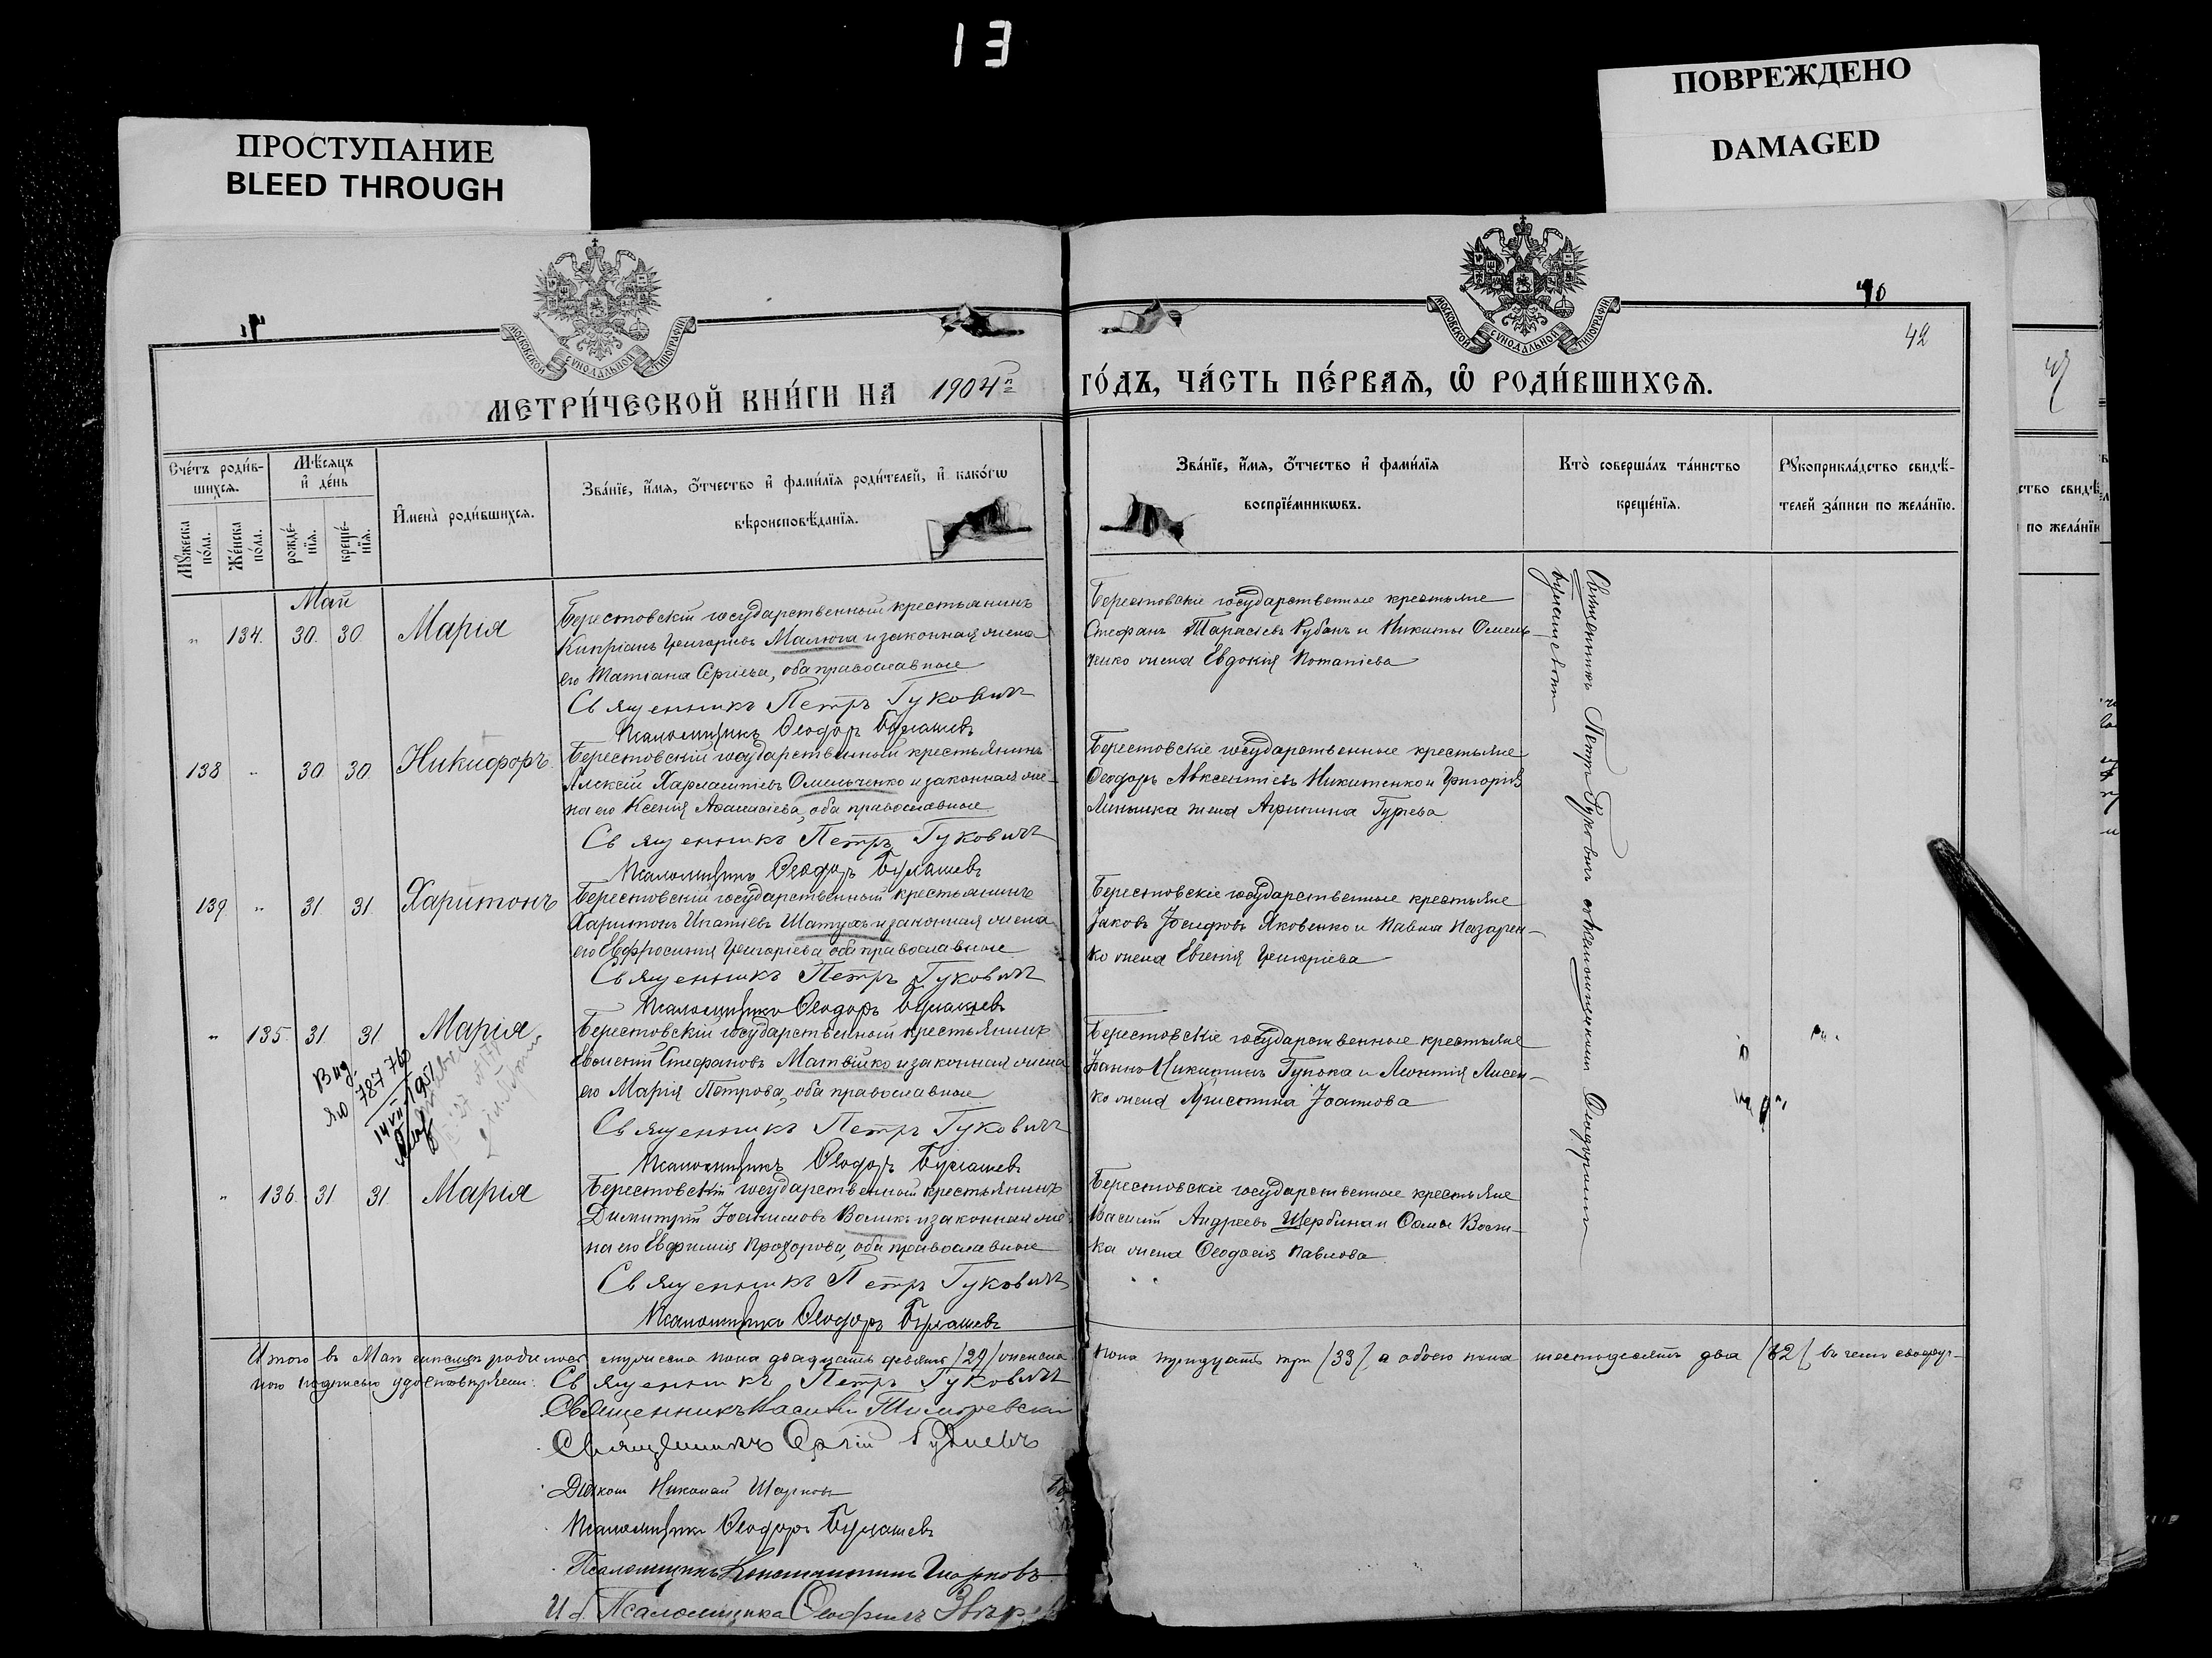 13
ПРОСТУПАНИЕ
BLEED THROUGH
ПОВРЕЖДЕНО
DAMAGED
МОСКОВСКОЙ СѴНОДАЛЬНОЙ ТИПОГРАФІИ
МОСКОВСКОЙ СѴНОДАЛЬНОЙ ТИПОГРАФІИ
40
42
МЕТРИ́ЧЕСКОЙ КНИ́ГИ НА 1904й
ГО́ДЪ, ЧА́СТЬ ПЕ́РВАѦ, Ѡ РОДИ́ВШИХСѦ.
Сче́тъ роди́в-
шихсѧ.
Мѣ́сѧцъ
и де́нь
Мꙋжеска по́ла.
Же́нска по́ла.
рожде́-нїѧ.
креще́-нїѧ.
Имена̀ роди́вшихсѧ.
Зва́нїе, и́мѧ, ѻ҆́тчество и фами́лїѧ роди́телей, и како́гѡ
вѣроисповѣ́данїѧ.
Зва́нїе, и́мѧ, ѻ҆́тчество и фами́лїѧ
воспрїе́мникѡвъ.
Кто̀ соверша́лъ та́инство
креще́нїѧ.
Рꙋкоприкла́дство свидѣ́-
телей за́писи по жела́нїю.
ство свидѣ
по жела́нїю
Май
" 134. 30. 30. Марія
Берестовскій государственный крестьянинъ
Кипріанъ Григоріевъ Малюга и законная жена
его Татіана Сергіева, оба православные
Священникъ Петръ Гукович
Псаломщикъ Ѳеодоръ Булашевъ
Берестовскіе государственные крестьяне
Стефанъ Тарасіевъ Рубанъ и Никиты Омель-
ченко жена Евдокія Потапіева
Священникъ Петръ Гуковичъ съ псаломщикомъ Ѳеодоромъ
Булашевымъ
138 " 30. 30. Никифоръ
Берестовскій государственный крестьянинъ
Алексій Харлампіевъ Омельченко и законная же-
на его Ксенія Аѳанасіева, оба православные
Священникъ Петръ Гукович
Псаломщикъ Ѳеодоръ Булашевъ
Берестовскіе государственные крестьяне
Ѳеодоръ Авксентіевъ Никитенко и Григорія
жена Агрипина Гурьева
139 " 31 31. Харитонъ
Берестовскій государственный крестьянинъ
Харитонъ Игнатіевъ Шатухъ и законная жена
его Евфросинія Григоріева оба православные
Священникъ Петръ Гукович
Псаломщикъ Ѳеодоръ Булашевъ
Берестовскіе государственные крестьяне
Іаковъ Іосифовъ Яковенко и Павла Назарен-
ко жена Евгенія Григоріева
" 135. 31. 31 Марія
Берестовскій государственный крестьянинъ
Евгеній Стефановъ Матвійко и законная жена
его Марія Петрова, оба православные
Священникъ Петръ Гукович
Псаломщикъ Ѳеодоръ Булашевъ
Берестовскіе государственные крестьяне
Іоаннъ Никитинъ Гупока и Леонтія Лисен-
ко жена Христина Іоаннова
Вид.
787 760
14 VII 1951
" 136. 31 31. Марія
Берестовскій государственный крестьянинъ
Димитрій Іоакимовъ Воликъ и законная же-
на его Евфимія Прохорова, оба православные
Священникъ Петръ Гукович
Псаломщикъ Ѳеодоръ Булашевъ
Берестовскіе государственные крестьяне
Василій Андреевъ Щербина и Ѳомы
жена Ѳеодосія Павлова
Итого въ Маѣ мѣсяцѣ родилось мужеска пола двадцать девять /29/ женска
пола тридцать три /33/, а обоего пола шестьдесятъ два /62/ въ чемъ своеруч-
ною подписью удостовѣряемъ: Священникъ Петръ Гукович
Священникъ Василій
Священникъ Сергій
Діаконъ Николай Шарковъ
Псаломщикъ Ѳеодоръ Булашевъ
Псаломщикъ Константинъ Шарковъ
И. д. Псаломщика Ѳеофилъ